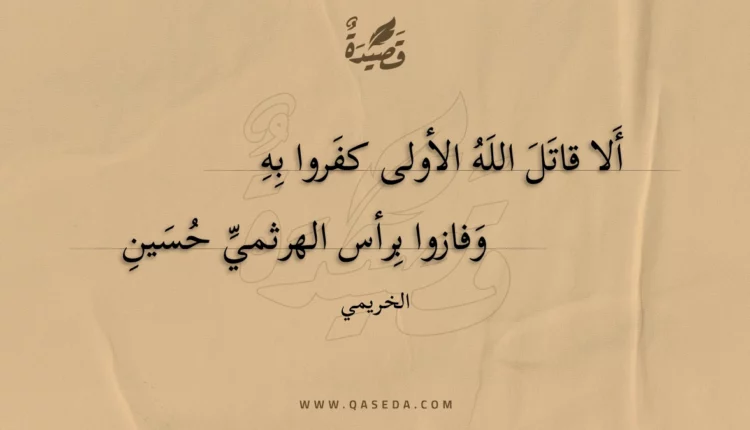 قَصِيْدَةٌ
أَلا قاتَلَ اللَهُ الأولى كفَروا بِهِ
وَفازوا بِرأس الهرثميِّ حُسَينِ
الخريمي
WWW.QASEDA.COM